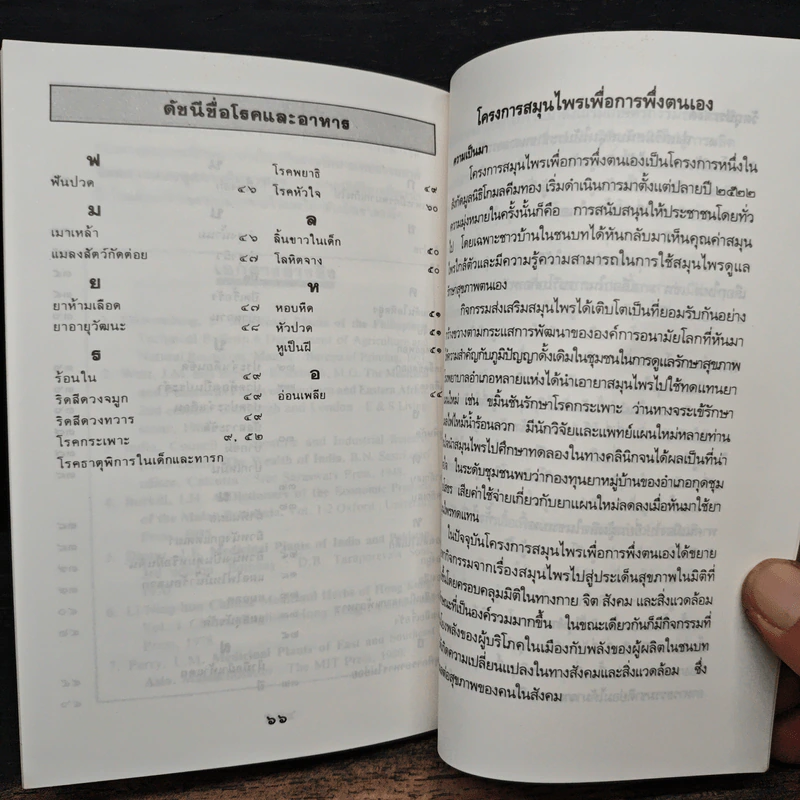 ดัชนีชื่อโรคและอาหาร
ฟ
ฟันปวด ๔๖
ม
เมาเหล้า ๔๖
แมลงสัตว์กัดต่อย ๔๗
ย
ยาห้ามเลือด ๔๗
ยาอายุวัฒนะ ๔๘
ร
ร้อนใน ๔๙
ริดสีดวงจมูก ๔๙
ริดสีดวงทวาร ๔๙
โรคกระเพาะ ๙, ๕๒
โรคธาตุพิการในเด็กและทารก
โรคพยาธิ ๔๙
โรคหัวใจ ๖๐
ล
ลิ้นขาวในเด็ก ๕๐
โลหิตจาง ๕๐
ห
หอบหืด ๕๑
หัวปวด ๕๑
หูเป็นฝี ๕๑
อ
อ่อนเพลีย ๔๔
๖๖
โครงการสมุนไพรเพื่อการพึ่งตนเอง
ความเป็นมา
โครงการสมุนไพรเพื่อการพึ่งตนเองเป็นโครงการหนึ่งใน
สังกัดมูลนิธิโกมลคีมทอง เริ่มดำเนินการมาตั้งแต่ปลายปี ๒๕๒๒
ความมุ่งหมายในครั้งนั้นก็คือ การสนับสนุนให้ประชาชนโดยทั่ว
ไป โดยเฉพาะชาวบ้านในชนบทได้หันกลับมาเห็นคุณค่าสมุน
ไพรใกล้ตัวและมีความรู้ความสามารถในการใช้สมุนไพรดูแล
รักษาสุขภาพตนเอง
กิจกรรมส่งเสริมสมุนไพรได้เติบโตเป็นที่ยอมรับกันอย่าง
กว้างขวางตามกระแสการพัฒนาขององค์การอนามัยโลกที่หันมา
ให้ความสำคัญกับภูมิปัญญาดั้งเดิมในชุมชนในการดูแลรักษาสุขภาพ
โรงพยาบาลอำเภอหลายแห่งได้นำเอายาสมุนไพรไปใช้ทดแทนยา
แผนใหม่ เช่น ขมิ้นชันรักษาโรคกระเพาะ ว่านหางจระเข้รักษา
ไฟไหม้น้ำร้อนลวก มีนักวิจัยและแพทย์แผนใหม่หลายท่าน
นำสมุนไพรไปศึกษาทดลองในทางคลินิกจนได้ผลเป็นที่น่า
ในระดับชุมชนพบว่ากองทุนยาหมู่บ้านของอำเภอกุดชุม
เสียค่าใช้จ่ายเกี่ยวกับยาแผนใหม่ลดลงเมื่อหันมาใช้ยา
สมุนไพรทดแทน
ในปัจจุบันโครงการสมุนไพรเพื่อการพึ่งตนเองได้ขยาย
กิจกรรมจากเรื่องสมุนไพรไปสู่ประเด็นสุขภาพในมิติที่
โดยครอบคลุมมิติในทางกาย จิต สังคม และสิ่งแวดล้อม
ที่เป็นองค์รวมมากขึ้น ในขณะเดียวกันก็มีกิจกรรมที่
พลังของผู้บริโภคในเมืองกับพลังของผู้ผลิตในชนบท
ความเปลี่ยนแปลงในทางสังคมและสิ่งแวดล้อม ซึ่ง
ต่อสุขภาพของคนในสังคม